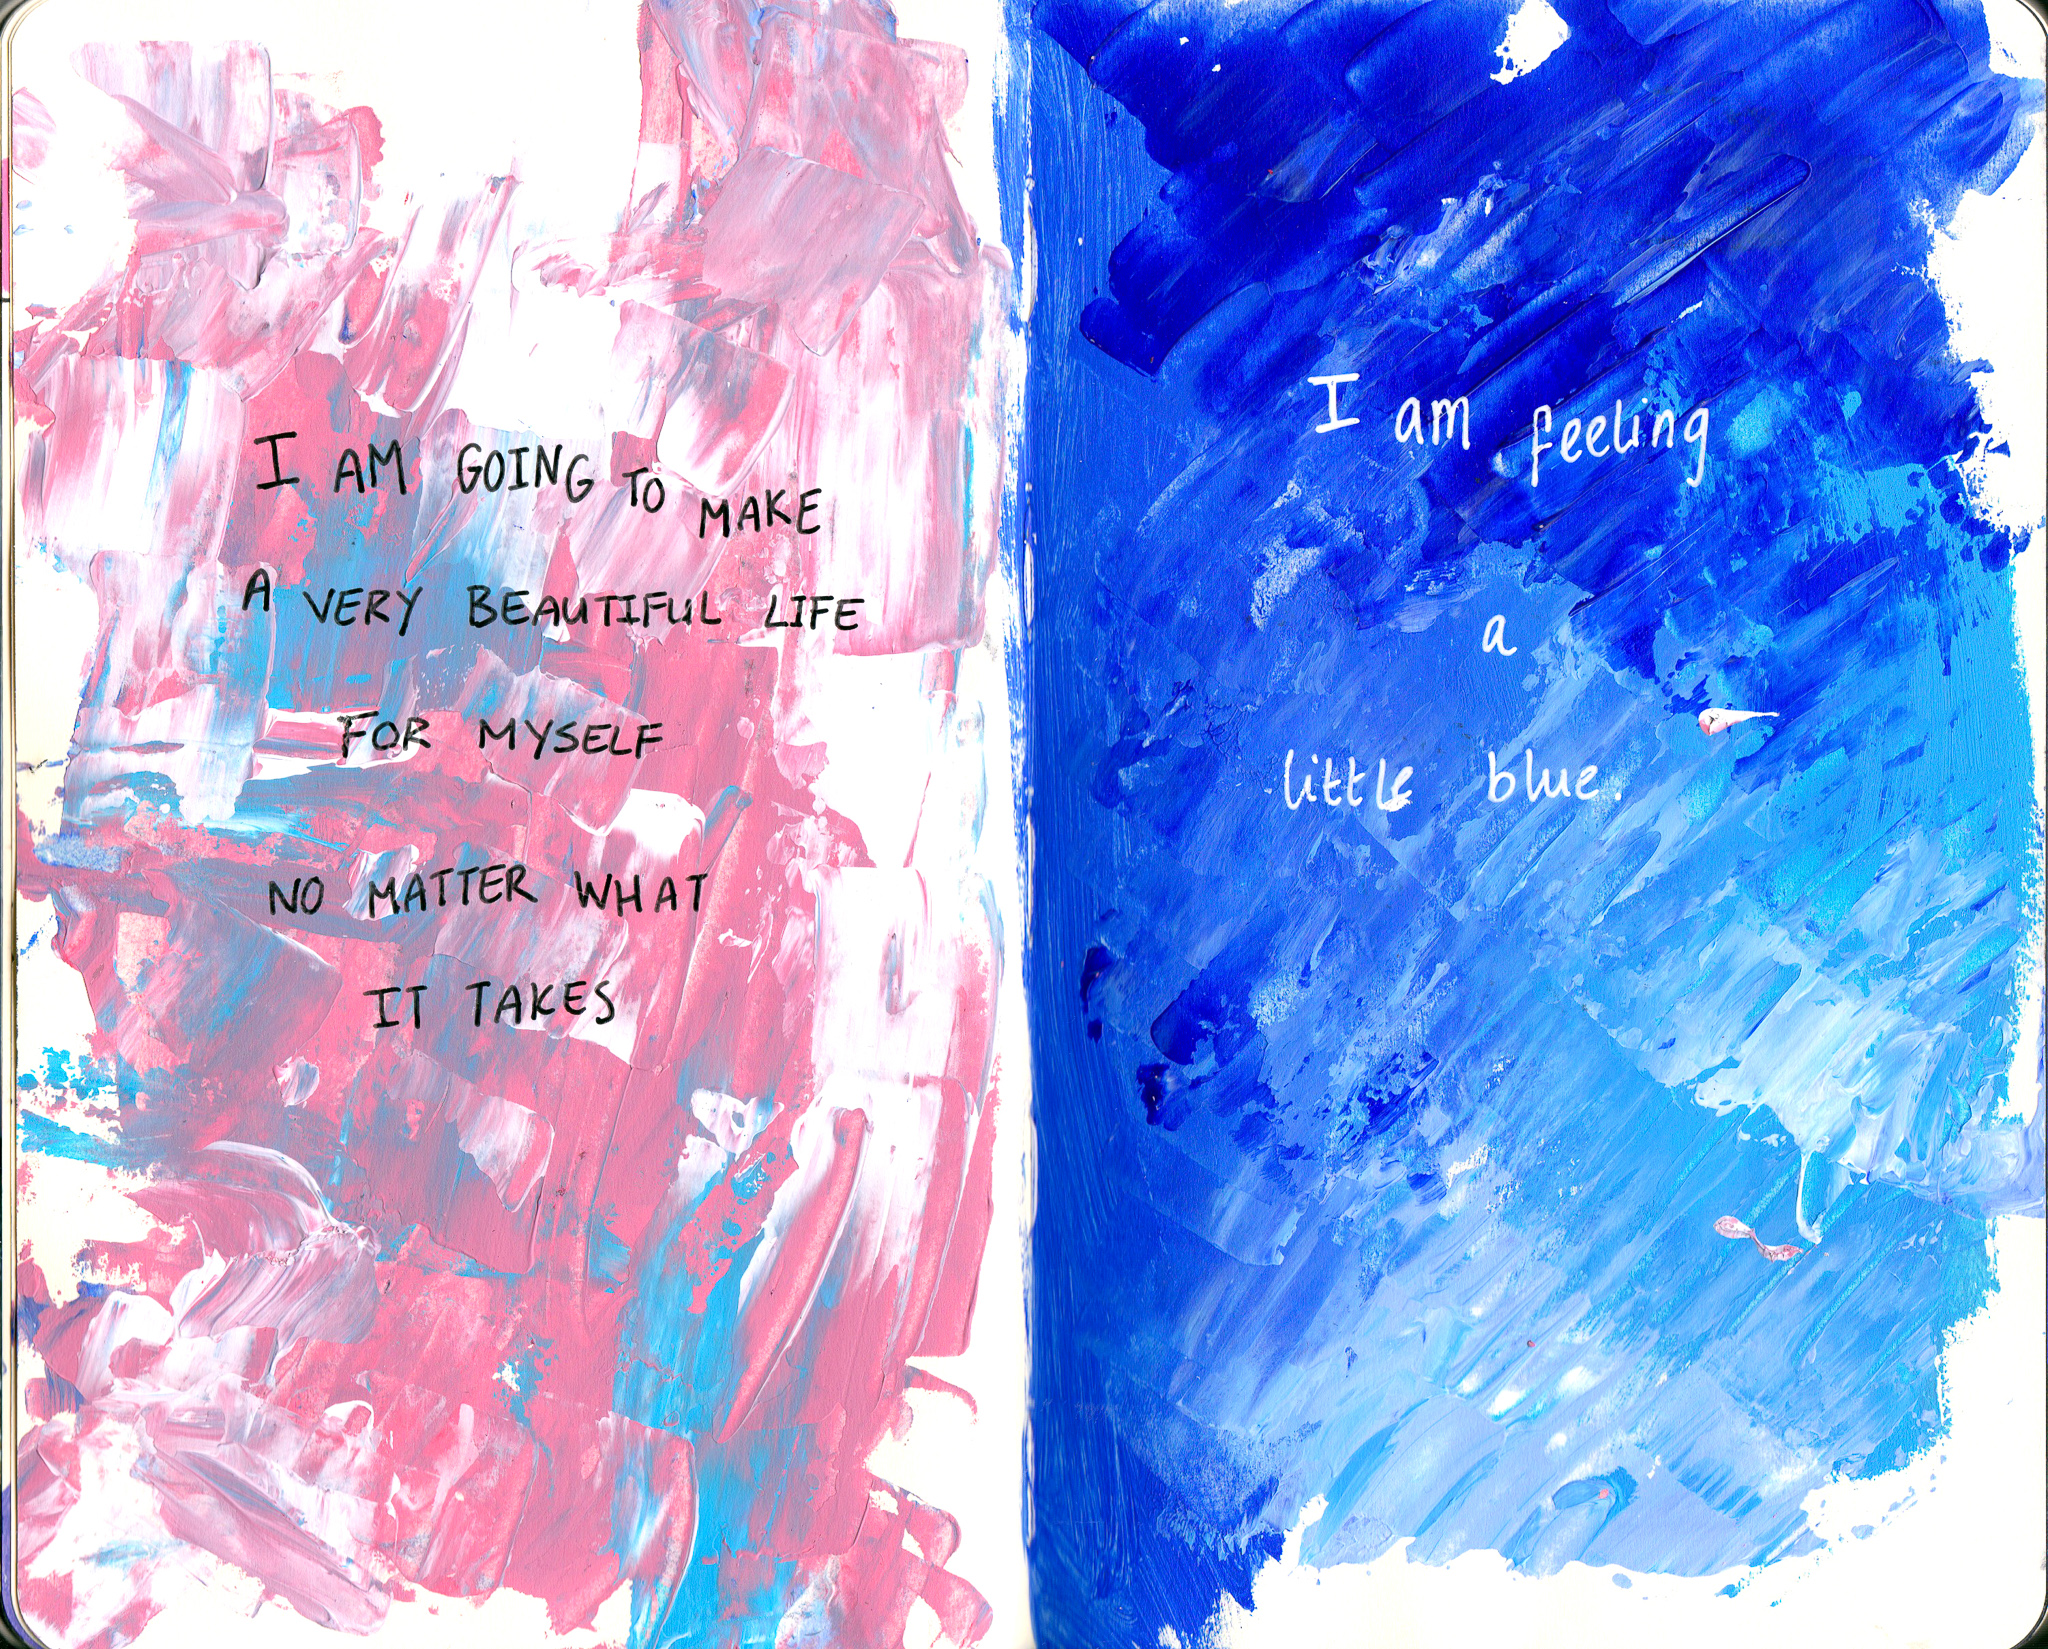 I AM GOING TO MAKE
A VERY BEAUTIFUL LIFE
FOR MYSELF
NO MATTER WHAT
IT TAKES
I am feeling
a
little blue.